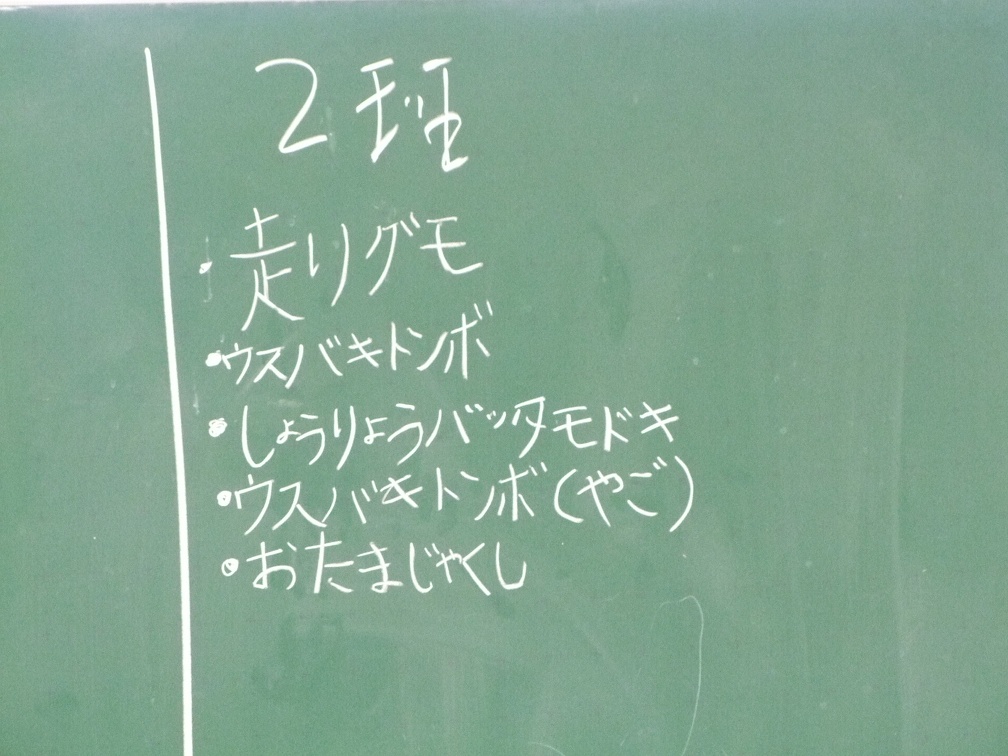 2班
・走りグモ
・ウスバキトンボ
・しょうりょうバッタモドキ
・ウスバキトンボ(やご)
・おたまじゃくし